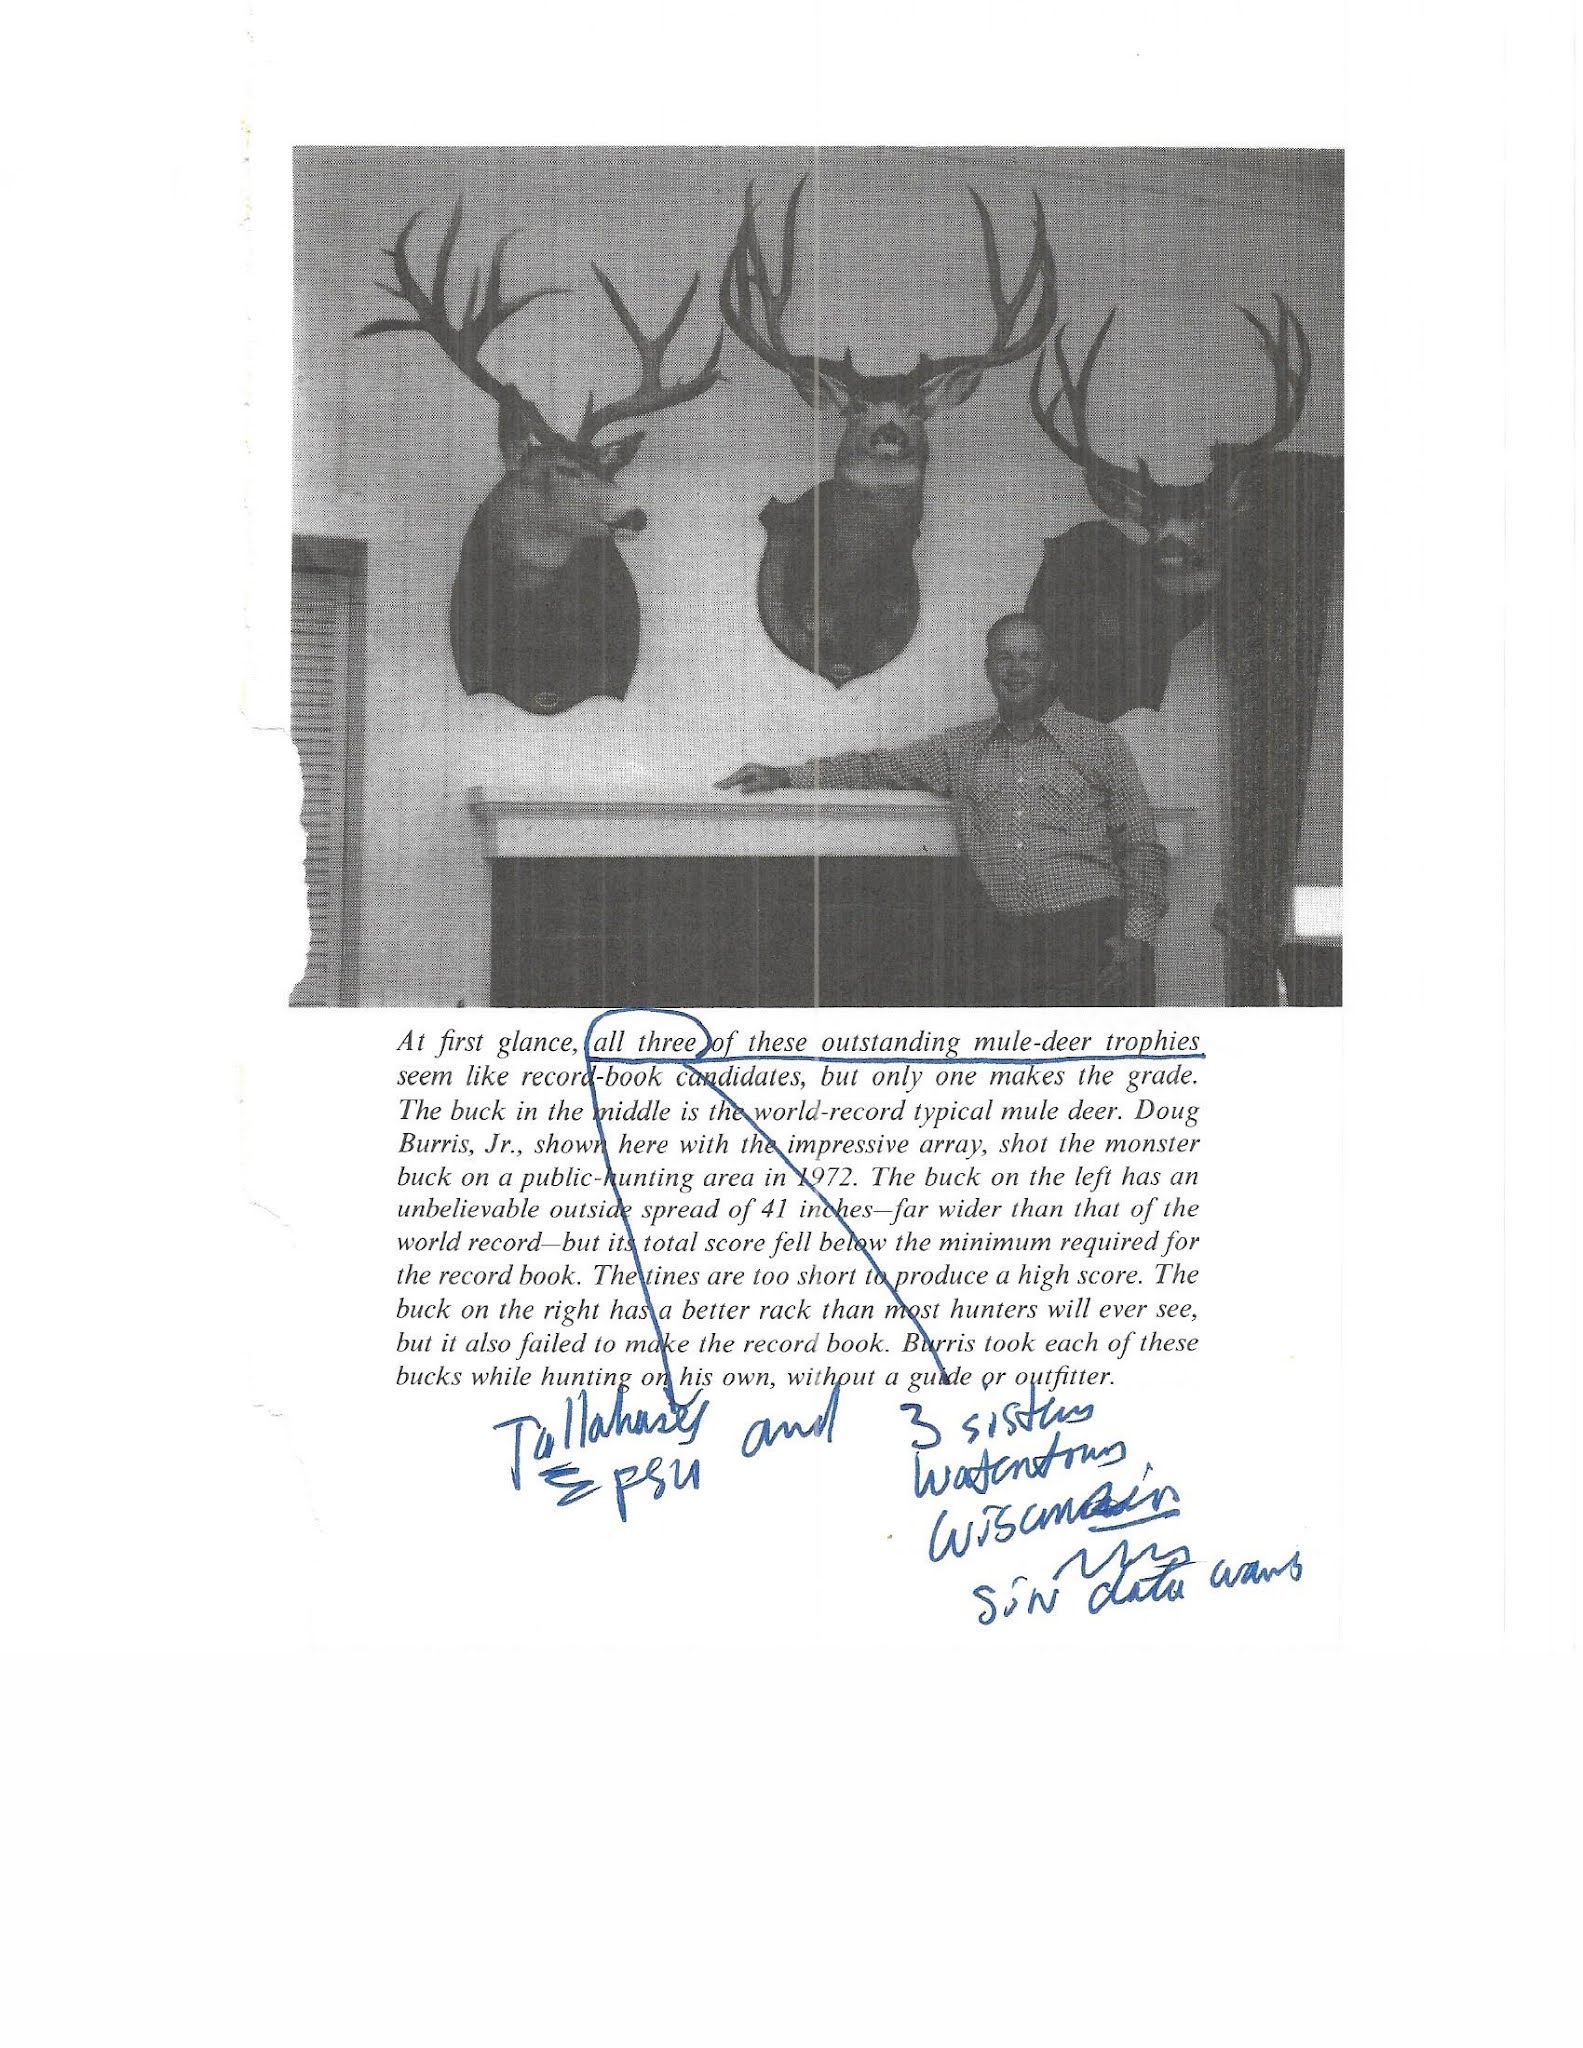 At first glance, all three of these outstanding mule-deer trophies
seem like record-book candidates, but only one makes the grade.
The buck in the middle is the world-record typical mule deer. Doug
Burris, Jr., shown here with the impressive array, shot the monster
buck on a public-hunting area in 1972. The buck on the left has an
unbelievable outside spread of 41 inches—far wider than that of the
world record—but its total score fell below the minimum required for
the record book. The tines are too short to produce a high score. The
buck on the right has a better rack than most hunters will ever see,
but it also failed to make the record book. Burris took each of these
bucks while hunting on his own, without a guide or outfitter.
and 3 sisters
PSU
data